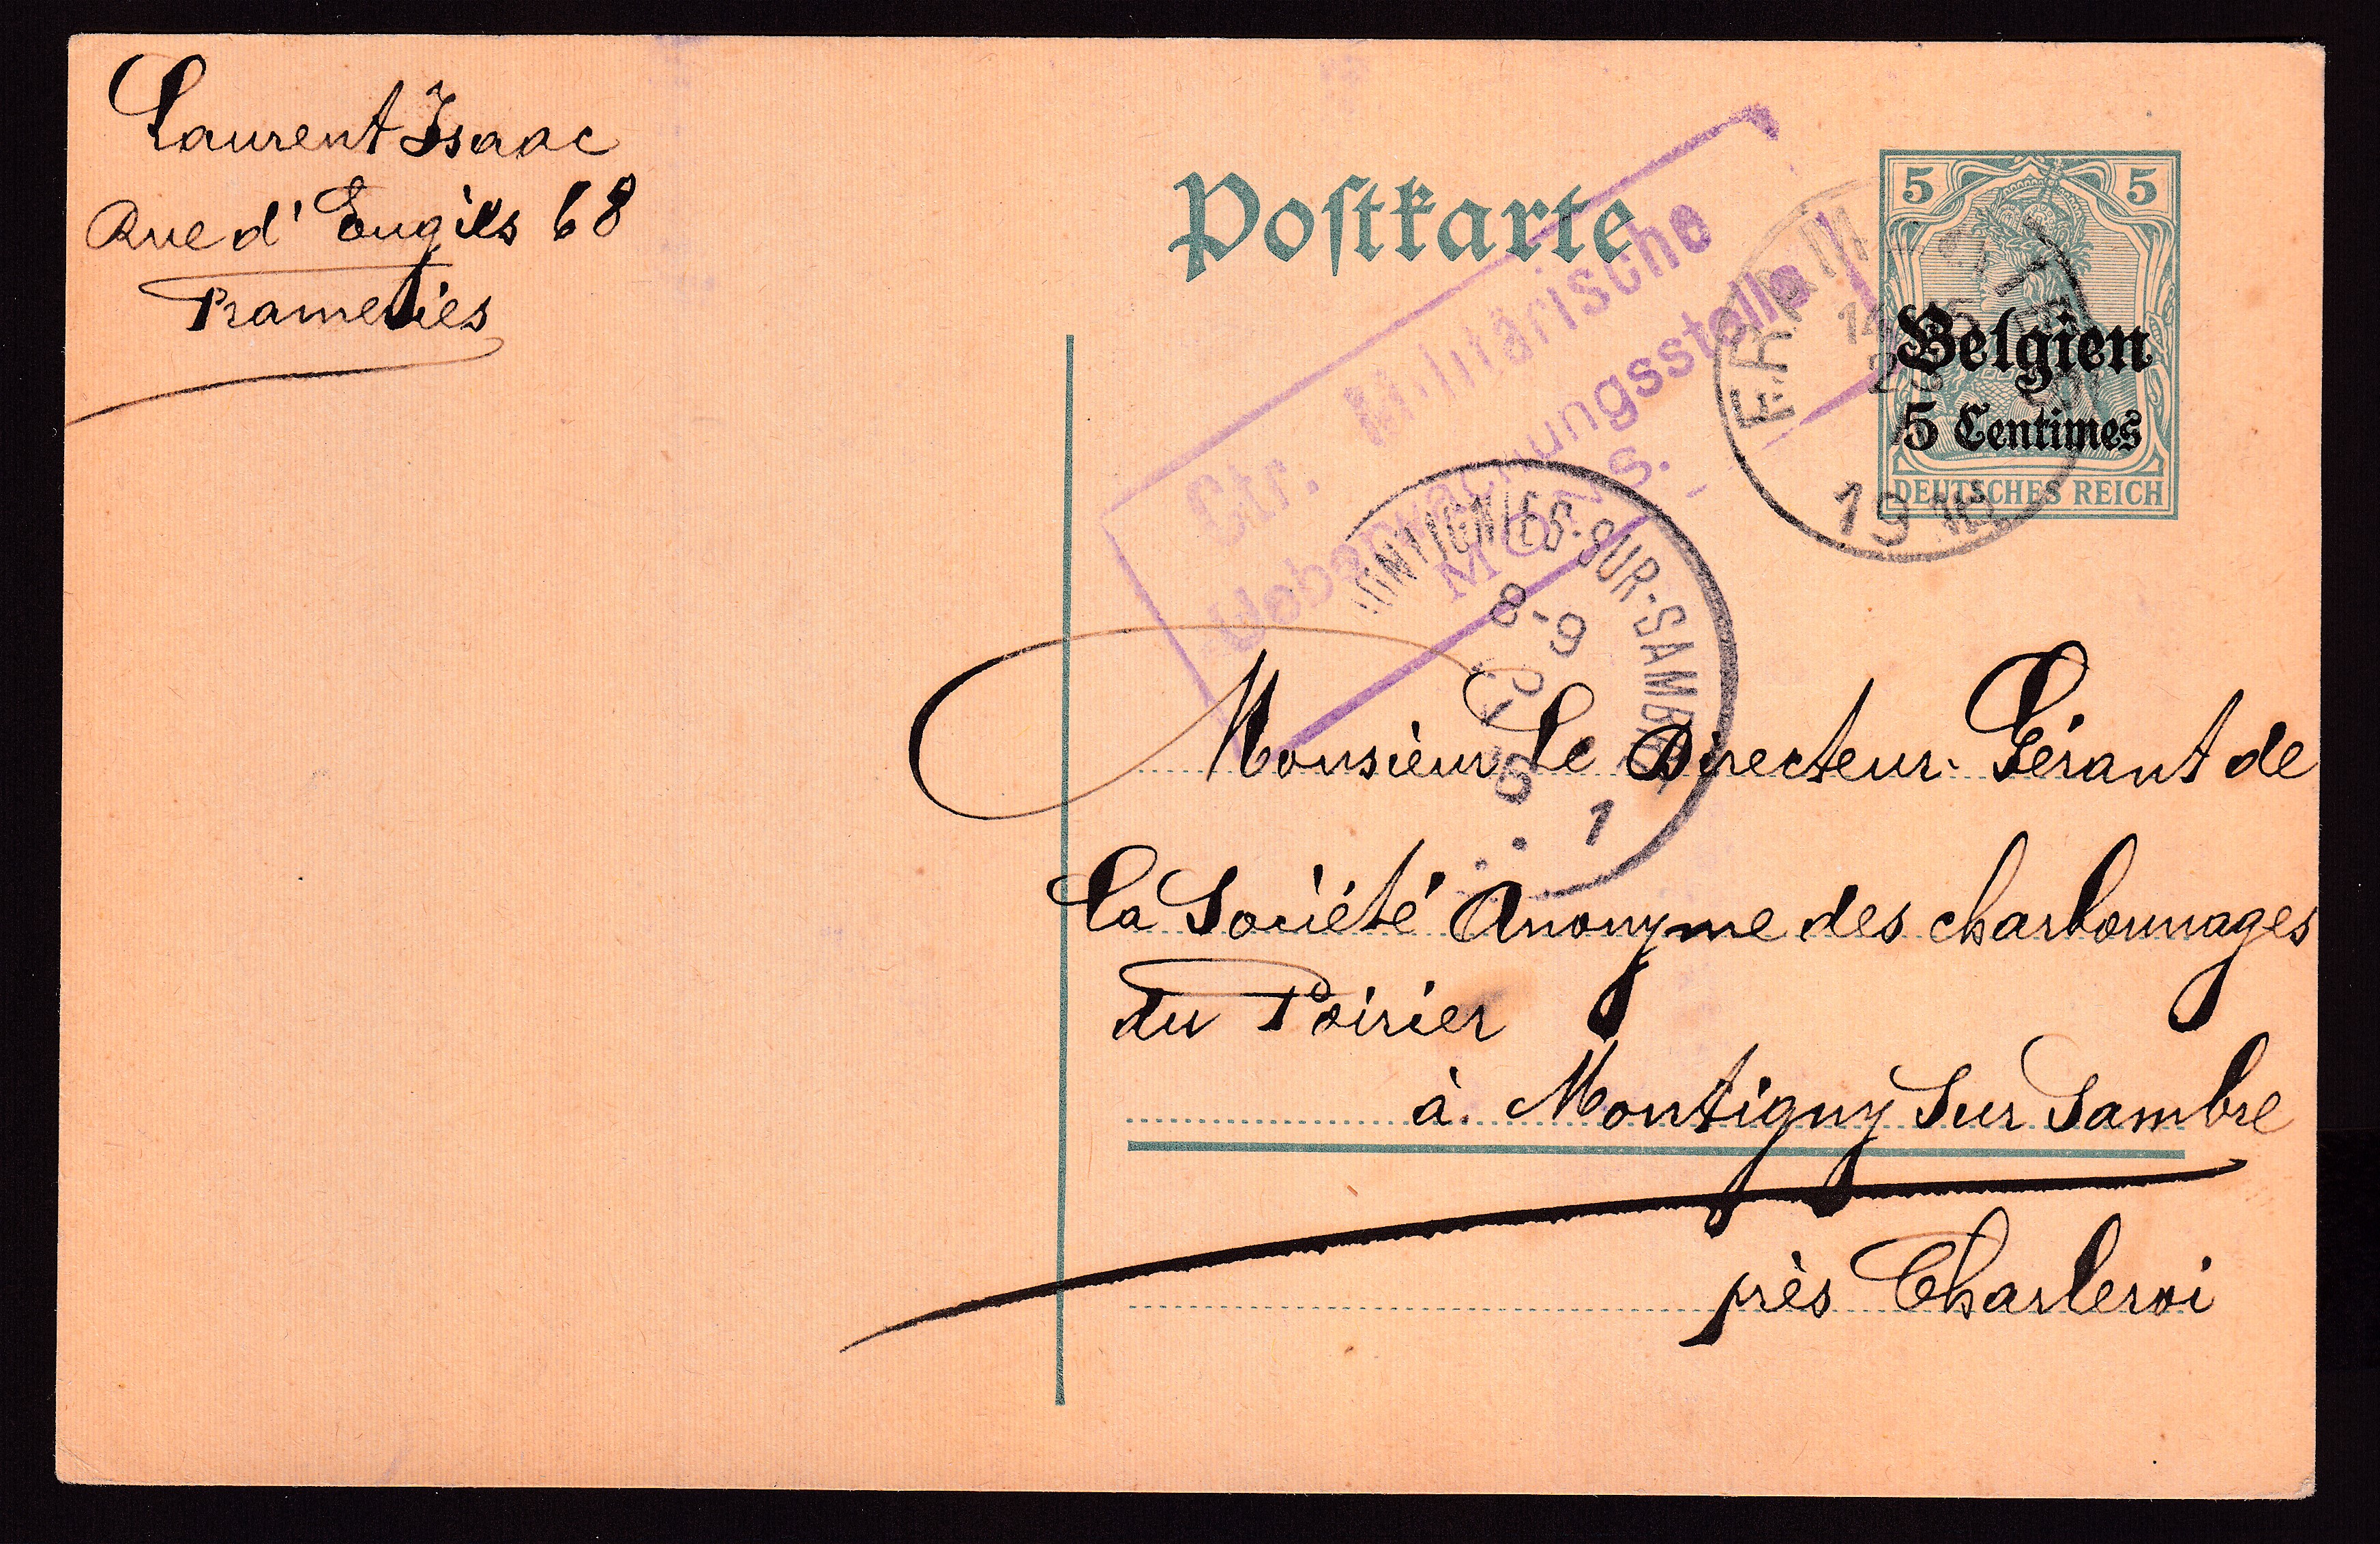 Laurent Isaac
Rue d'Eugies 68
Frameries
Postkarte
5 5
Belgien
5 Centimes
DEUTSCHES REICH
Ctr. Militärische
Ueberwachungsstelle
MONS.
1916
MONTIGNIES-SUR-SAMBRE
8-9
1
Monsieur Le Directeur-Gérant de
La Société Anonyme des charbonnages
du Poirier
à Montigny Sur Sambre
près Charleroi